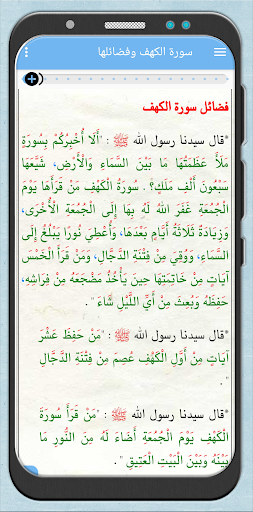 سورة الكهف وفضائلها
فضائل سورة الكهف
*قال سيدنا رسول الله ﷺ : "أَلَا أُخْبِرُكُمْ بِسُورَةٍ
مَلَأَ عَظَمَتُهَا مَا بَيْنَ السَّمَاءِ وَالْأَرْضِ، شَيَّعَهَا
سَبْعُونَ أَلْفَ مَلَكٍ؟ . سُورَةُ الْكَهْفِ مَنْ قَرَأَهَا يَوْمَ
الْجُمُعَةِ غَفَرَ اللهُ لَهُ بِهَا إِلَى الْجُمُعَةِ الْأُخْرَى،
وَزِيَادَةُ ثَلَاثَةُ أَيَّامٍ بَعْدَهَا، وَأُعْطِيَ نُورًا يَبْلُغُ إِلَى
السَّمَاءِ، وَوُقِيَ مِنْ فِتْنَةِ الدَّجَّالِ، وَمَنْ قَرَأَ الْخَمْسَ
آيَاتٍ مِنْ خَاتِمَتِهَا حِينَ يَأْخُذُ مَضْجَعَهُ مِنْ فِرَاشِهِ،
حَفِظَهُ وَبُعِثَ مِنْ أَيِّ اللَّيْلِ شَاءَ" .
*قال سيدنا رسول الله ﷺ : "مَنْ حَفِظَ عَشْرَ
آيَاتٍ مِنْ أَوَّلِ الْكَهْفِ عُصِمَ مِنْ فِتْنَةِ الدَّجَّالِ
" .
*قال سيدنا رسول الله ﷺ : "مَنْ قَرَأَ سُورَةَ
الْكَهْفِ يَوْمَ الْجُمُعَةِ أَضَاءَ لَهُ مِنَ النُّورِ مَا
بَيْنَهُ وَبَيْنَ الْبَيْتِ الْعَتِيقِ" .